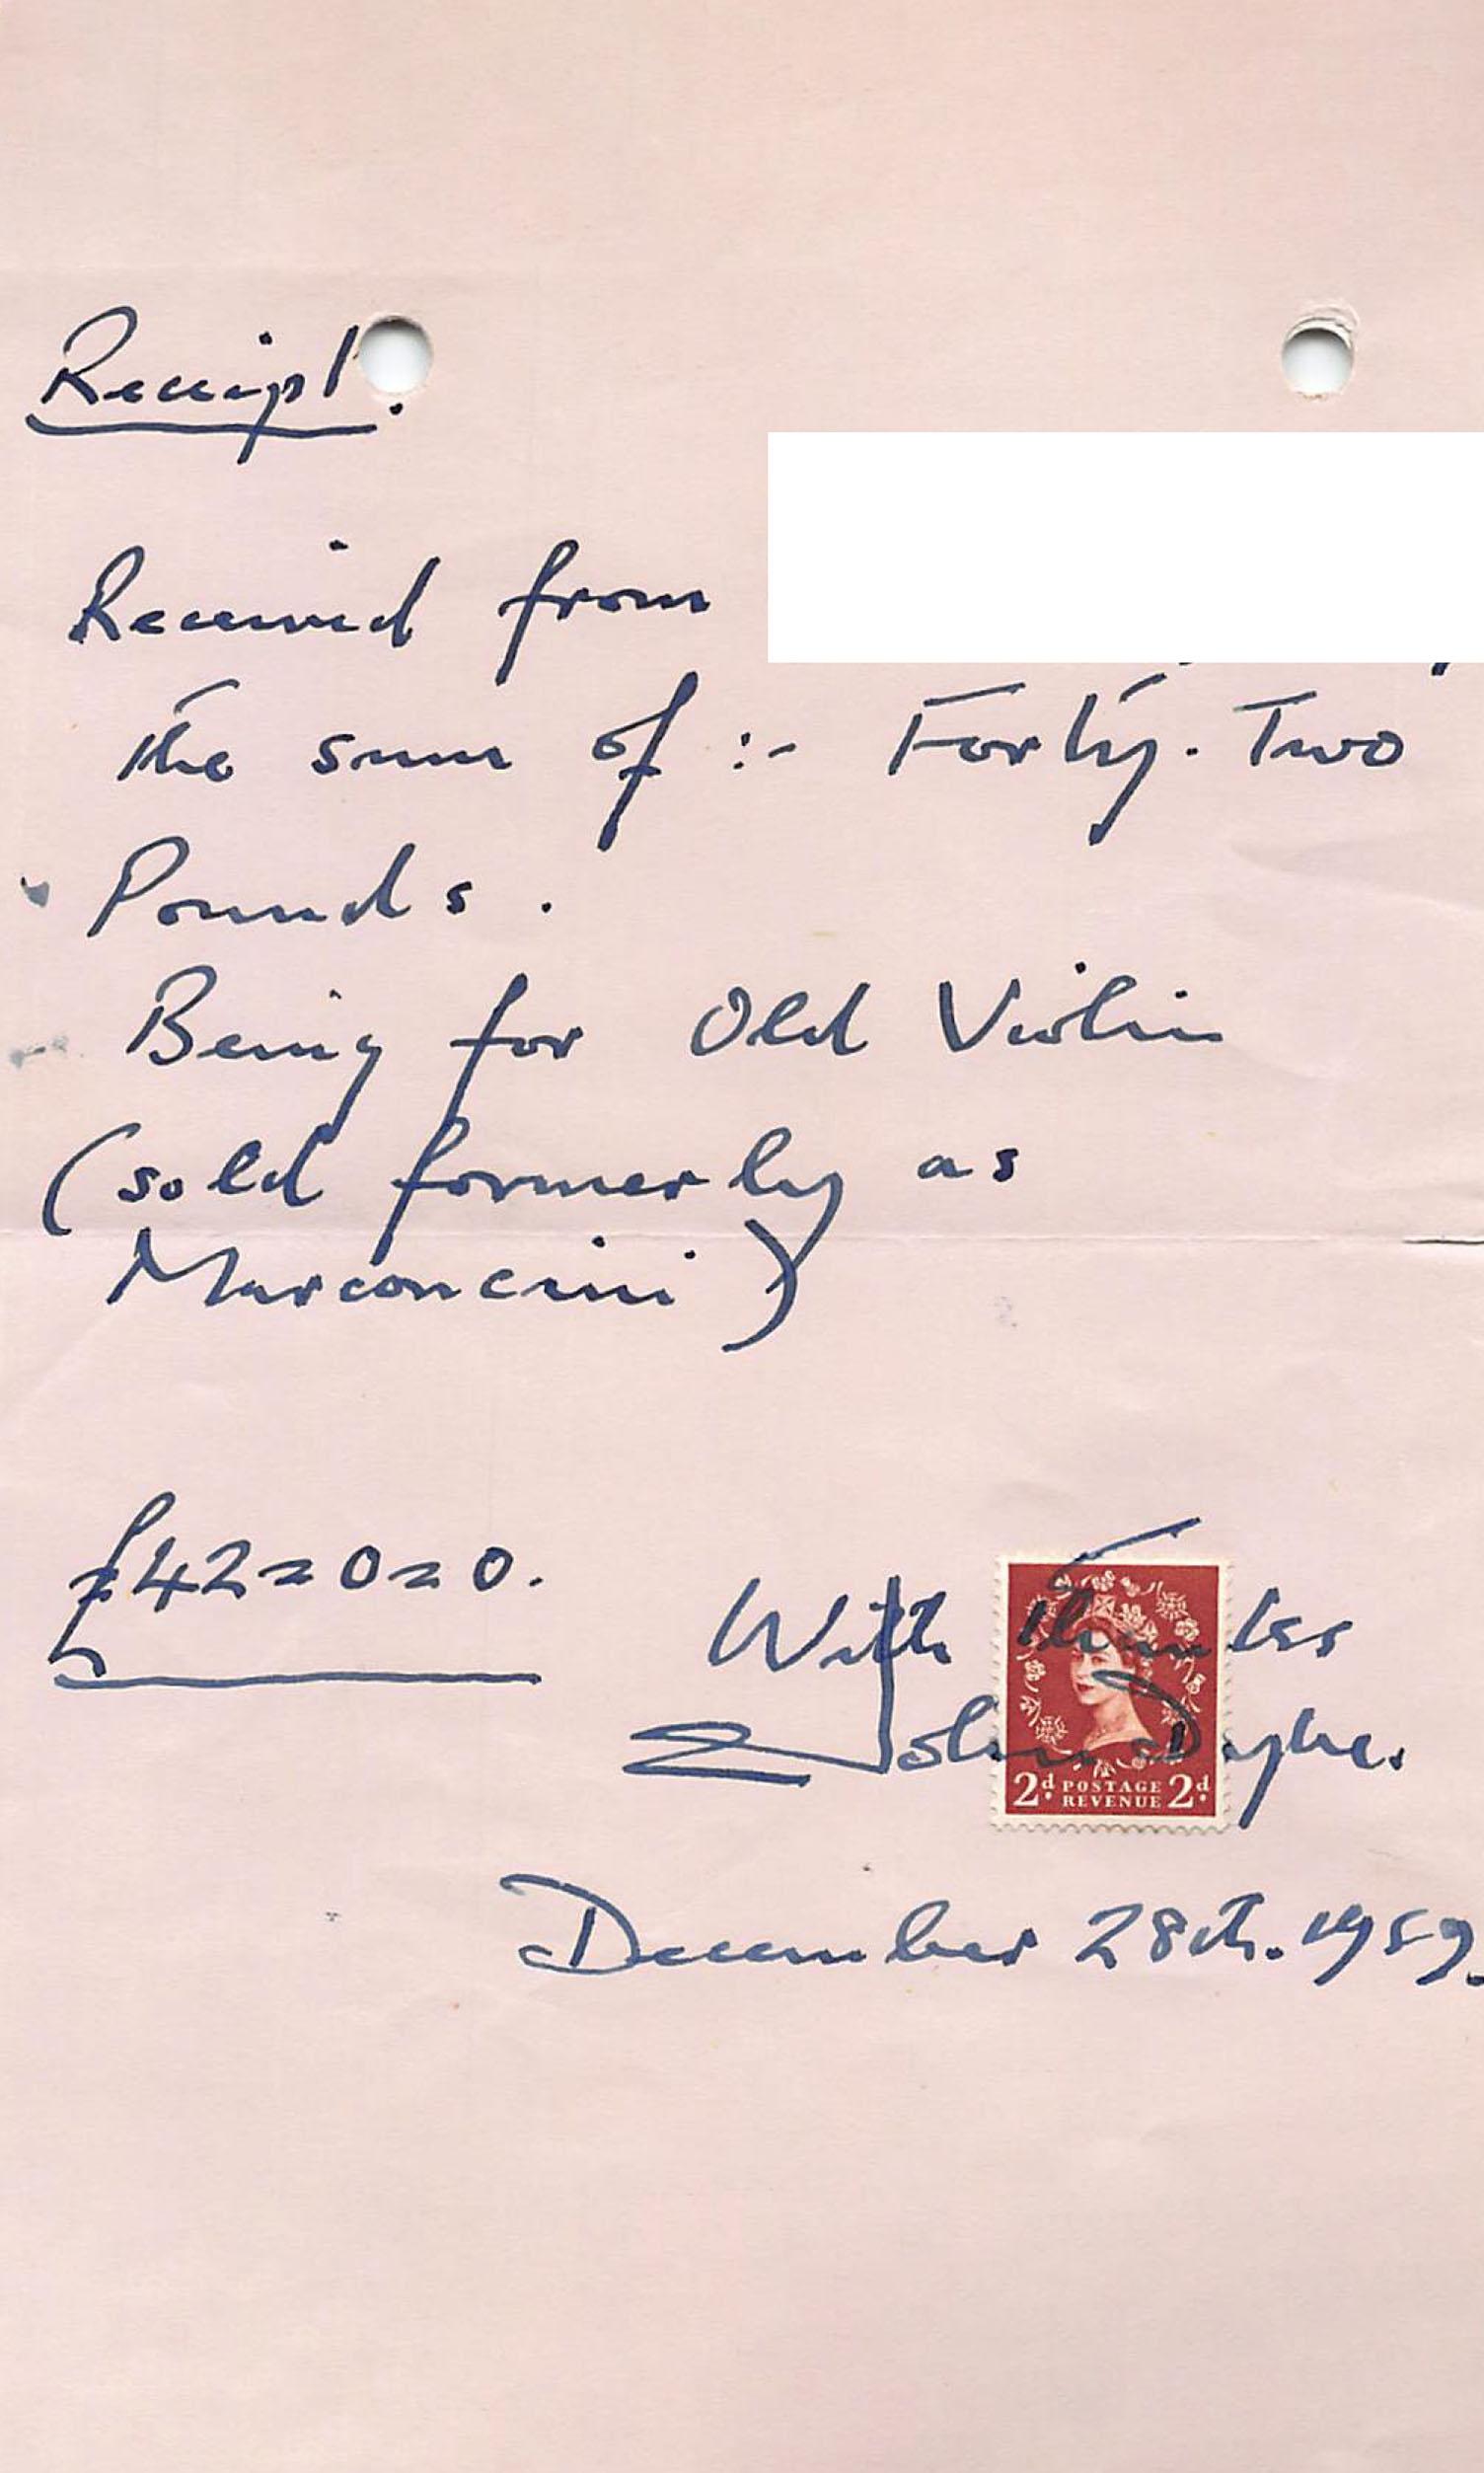 Receipt.
Received from
the sum of :- Forty-Two
Pounds.
Being for Old Violin
(sold formerly as
Marconcini)
£42=0=0.
With Thanks
John
2d POSTAGE 2d
REVENUE
December 28th. 1959.